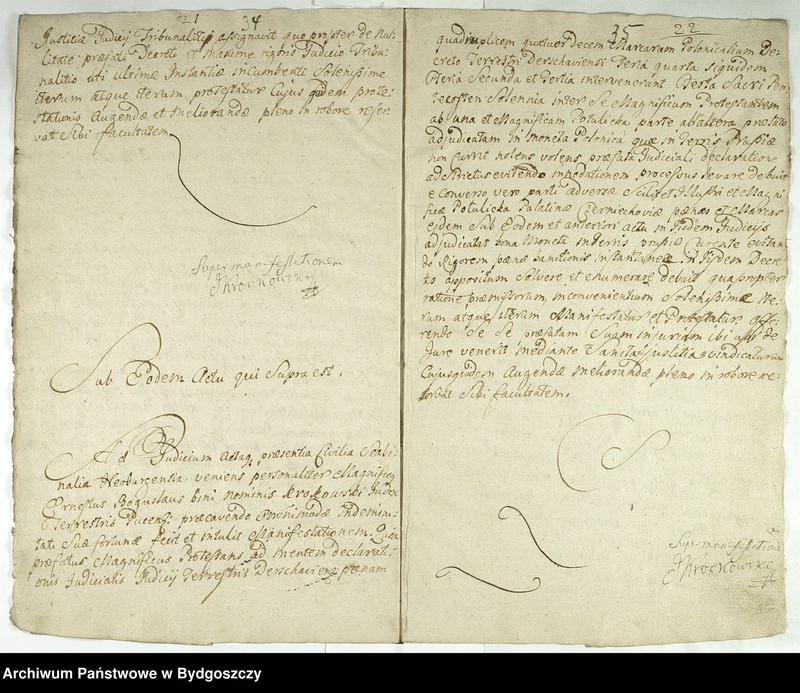 21 34
Justitiæ Judicij Tribunalitij assignavit quo propter de Nul-
litate præfati Decreti et Maxime rigoris Judicio Tribu-
nalitio uti ultimæ Instantiæ incumbenti Solenissime
iterum atque iterum protestatur Cujus quidem prote-
stationis Augendæ et Meliorandæ pleno in robore reser-
vat Sibi facultatem
Super manifestationem
JKrockowski
Sub Eodem Actu qui Supra est.
Ad Judicium Actaq præsentia Civilia Scabi-
nalia Neoburgensia veniens personaliter Magnificus
Ernestus Boguslaus bini Nominis Krokowski Judex
Terrestris Pucensis præcavendo omnimodæ indemni-
tati Suæ fortunæ fecit et intulit Manifestationem. Quia
præfatus Magnificus Protestans ad mentem declarati-
onis Judicialis Judicij Terrestris Derschaviens pænam
35 22
quadruplicem quatuor Decem Marcarum Polonicalium De-
creto Terrestri Derschaviensi Feria quarta siquidem
Feria Secunda et Tertia intervenerunt Festa Sacri Pen-
tecosten Solennia inter Se Magnificum Protestantem
ab una et Magnificam Potulicka parte ab altera prælato
adjudicatam in Moneta Polonica quæ in Terris Prussiæ
non Currit nolens volens præfata Judiciali declaratione
adstrictus evitendo impeditionem processus levare debuit
e Converso vero parti adversæ Scilicet Illustri et Magni-
ficæ Potulicka Palatinæ Czerniechoviæ pænas et Marcas
ejdem Sub Eodem et anteriori actu in Ijsdem Judicijs
adjudicatas bona Moneta in Terris prussiæ Curente evitan-
do Rigorem pænæ Sanctionis instantaneæ in Ijsdem Decre-
to appositum Solvere et enumerare debuit qua propter
ratione præmissorum, inconvenientium Solenissimæ Ite-
rum atque iterum Manifestatur et Protestatur offe-
rendo Se Se præfatam Suam injuriam ibi ubi de
Jure venerit mediante Sancta justitia vindicaturum
Cujusquidem Augendæ Meliorandæ pleno in robore re-
servat Sibi facultatem.
Super manifestationem
JKrockowski
Archiwum Państwowe w Bydgoszczy